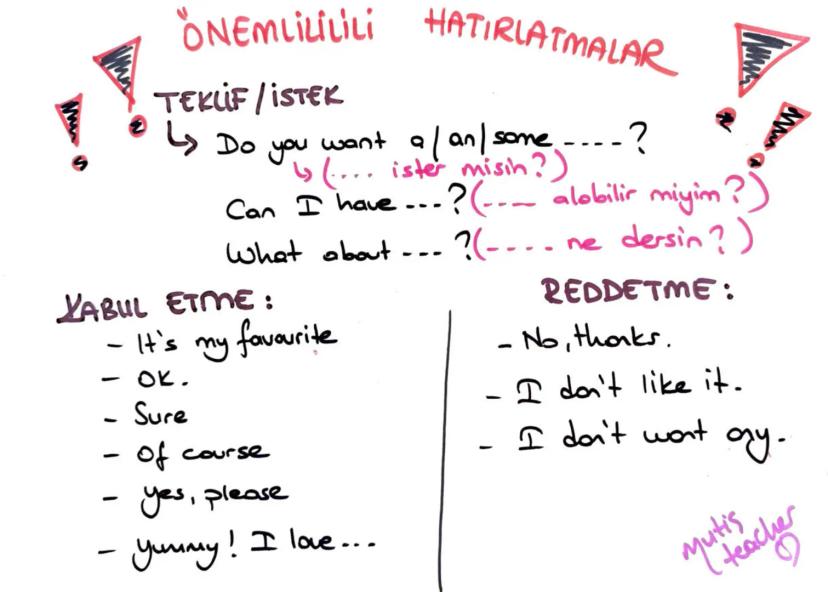 ÖNEMLİLİLİLİ HATIRLATMALAR
TEKLİF/İSTEK
↳ Do you want a/an/some ----?
↳(.... ister misin?)
Can I have ---?(---- alabilir miyim?)
What about --- ?(---- ne dersin?)
KABUL ETME:
- It's my favourite
- OK.
- Sure
- Of course
- Yes, please
- Yummy! I love ---
REDDETME:
- No, thanks.
- I don't like it.
- I don't want any.
Mutiş
teacher